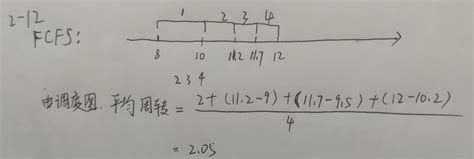 2-12
FCFS:
1 2 3 4
8 10 11.2 11.7 12
2 3 4
由调度图，平均周转 = 2+(11.2-9)+(11.7-9.5)+(12-10.2) / 4
= 2.05